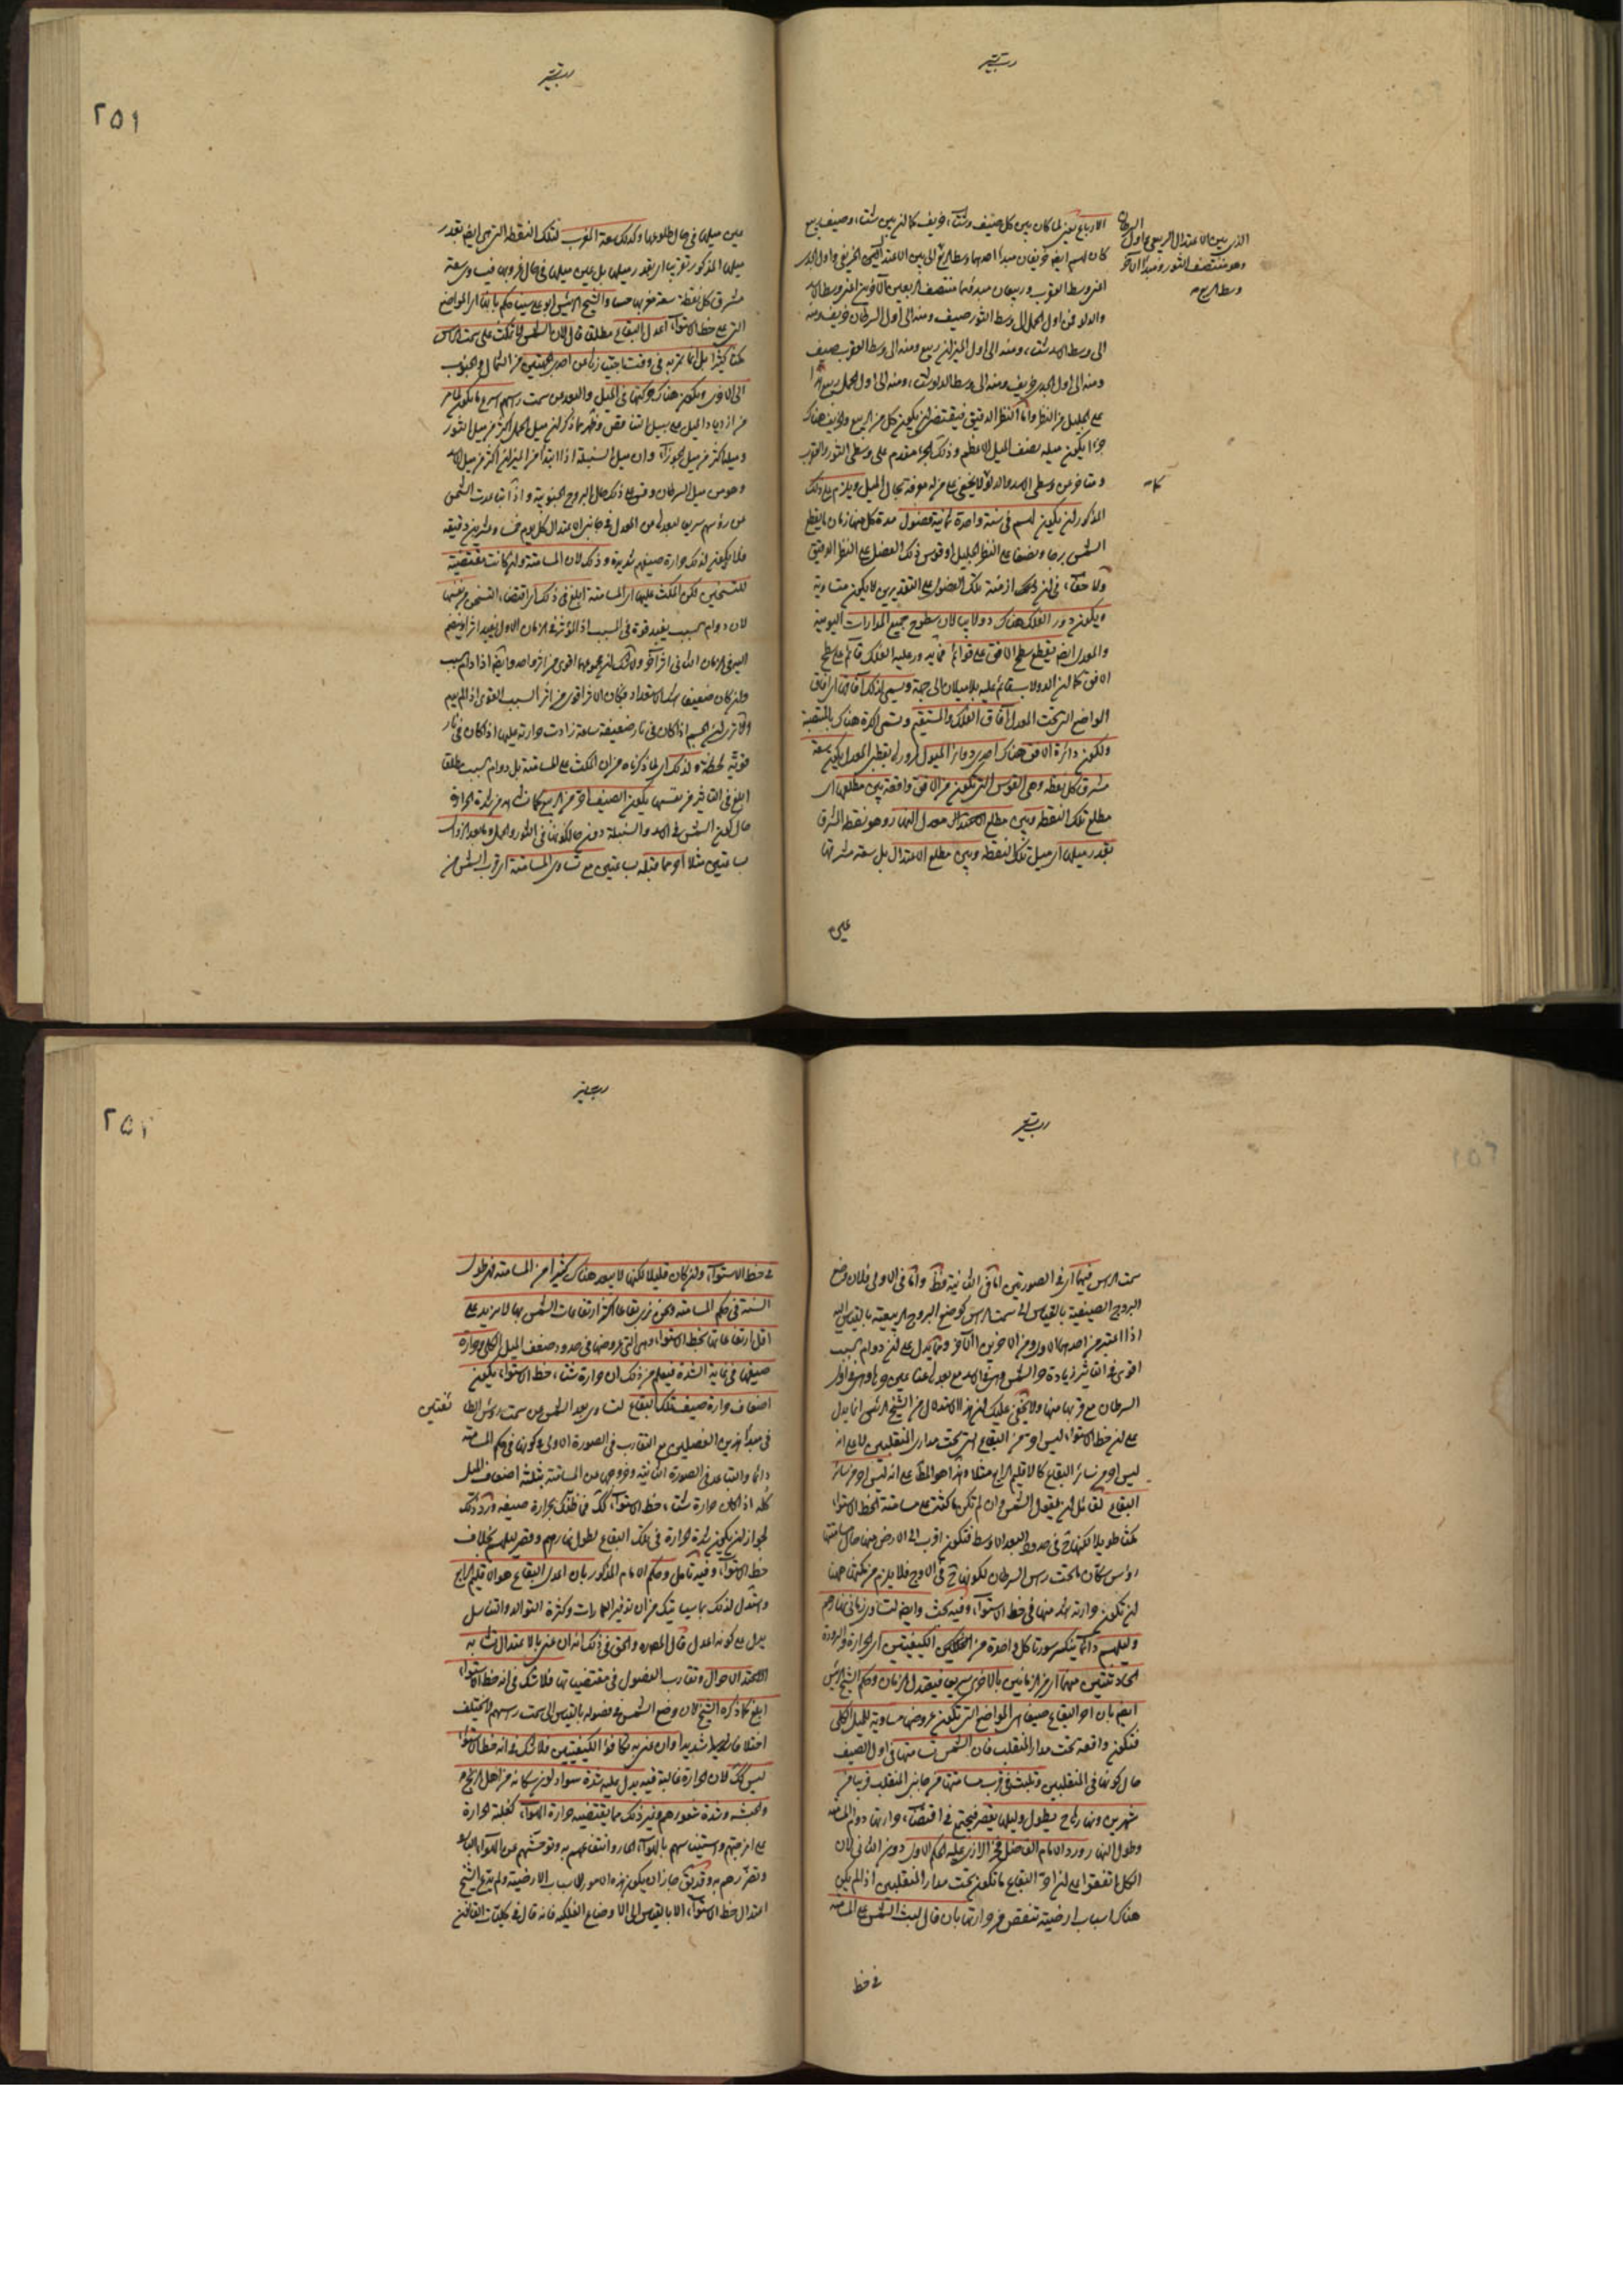 الارباع يعنى لما كان بين كل صيف وشتاء خريف كما ان بين شتاء وصيف ربيع
كان لهم ايضا خريفان مبدأ احدهما وسط الربع الذى بين الاعتدال الخريفى واول الجدى
اعنى وسط العقرب وربيعان مبدؤهما منتصف الربعين الآخرين اعنى وسط الاسد
والدلو فمن اول الحمل الى وسط الثور صيف ومنه الى اول السرطان خريف ومنه
الى وسط الاسد شتاء ومنه الى اول الميزان ربيع ومنه الى وسط العقرب صيف
ومنه الى اول الجدى خريف ومنه الى وسط الدلو شتاء ومنه الى اول الحمل ربيع هذا
على الجليل من النظر واما النظر الدقيق فيقتضى ان يكون كل من الربيع والخريف هناك
جزءا يكون ميله نصف الميل الاعظم وذلك الجزء مقدم على وسطى الثور والعقرب
ومتأخر عن وسطى الاسد والدلو كما لا يخفى على من له معرفة بحال الميل ويلزم على ذلك
المذكور ان يكون لهم فى سنة واحدة ثمانية فصول مدة كل منها زمان ما يقطع
الشمس برجا ونصفا على النظر الجليل او قوس ذلك الفصل على النظر الدقيق
ولا خفاء فى ان ازمنة تلك الفصول على التقديرين لا يكون متساوية
ويكون دور الفلك هناك دولابيا لان سطوح جميع المدارات اليومية
والمعدل ايضا يقطع سطح الافق على قوائم فما يدور عليه الفلك قائم على سطح
الافق كما ان الدولاب قائم عليه بلا ميلان الى جهة ويسمى لذلك آفاقها اى آفاق
المواضع التى تحت المعدل آفاق الفلك المستقيم وتسمى الكرة هناك بالمنتصبة
ولكون دائرة الافق هناك احدى دوائر الميول لمروره بقطبى المعدل يكون سعة
مشرق كل نقطة وهى القوس التى تكون من الافق واقعة بين مطلعها اى
مطلع تلك النقطة وبين مطلع الاعتدال معدل النهار وهو نقطة المشرق
بقدر ميلها اى ميل تلك النقطة وبين مطلع الاعتدال بل سعة مشرقها
عين
الذى بين الاعتدال الربيعى واول السرطان
وهو منتصف الثور ومبدأ الآخر
وسط الربع
عين ميلها فى حال طلوعها وكذلك سعة المغرب لتلك النقطة التى هى ايضا بقدر
ميلها المذكور تقريبا اى بقدر ميلها بل عين ميلها فى حال غروبها فيساوى سعة
مشرق كل نقطة سعة مغربها حسا والشيخ الرئيس ابو على سينا حكم بانها اى المواضع
التى على خط الاستواء اعدل البقاع مطلقا قال لان الشمس لا تمكث على سمت الرأس
مكثا كثيرا بل انما تمر به فى وقت اجتيازها من احدى الجهتين من الشمال والجنوب
الى الاخرى ويكون هناك حركتها فى الميل والبعد عن سمت رؤسهم اسرع ما يكون لما مر
من ازدياد الميل على سبيل التناقص وظهر مما ذكر ان ميل الحمل اكثر من ميل الثور
وميله اكثر من ميل الجوزاء وان ميل السنبلة اذا ابتدأ من الميزان اكثر من ميل الاسد
وهو من ميل السرطان وقس على ذلك حال البروج الجنوبية واذا تباعدت الشمس
عن رؤسهم سريعا لبعدها عن المعدل فى جانبى الاعتدال كل يوم خمسا وعشرين دقيقة
فلا يكون لذلك حرارة صيفهم شديدة وذلك لان المسامتة وان كانت مقتضية
للتسخين لكن المكث عليها اى المسامتة ابلغ فى ذلك اى اقتضاء التسخين من نفسها
لان دوام السبب يفيد قوة فى المسبب اذ المؤثر فى الزمان الاول يفيد اثرا وينضم
اليه فى الزمان الثانى اثر آخر ولا شك ان مجموعهما اقوى من اثر واحد وايضا اذا دام السبب
وان كان ضعيفا اشتد الاستعداد فكان الاثر اقوى من اثر السبب القوى اذ لم يدم
والا ترى ان الجسم اذا كان فى نار ضعيفة ساعة زادت حرارته عليها اذا كان فى نار
قوية لحظة ولذلك اى لما ذكرناه من ان المكث على المسامتة بل دوام السبب مطلقا
ابلغ فى التأثير من نفسها يكون الصيف احر من الربيع كانت اشد من شدة الحرارة
حال كون الشمس فى الاسد والسنبلة دون حال كونها فى الثور والحمل وما بعد الزوال
بساعتين مثلا احر مما قبله بساعتين مع تساوى المسامتة اى قرب الشمس من
سمت الرأس فيهما اى فى الصورتين اما فى الثانية فظ واما فى الاولى فلان وضع
البروج الصيفية بالقياس الى سمت الرأس كوضع البروج الربيعية بالقياس اليه
اذا اعتبر من احدهما الاول ومن الاخرين الآخر ومما يدل على ان دوام السبب
اقوى فى التأثير زيادة حر الشمس وهى فى الاسد مع بعدها عنا عن حرها وهى فى اول
السرطان مع قربها منها ولا يخفى عليك ان هذا الاستدلال من الشيخ الرئيس انما يدل
على ان خط الاستواء ليس احر من البقاع التى تحت مدارى المنقلبين لا على انه
ليس احر من سائر البقاع كالاقليم الرابع مثلا وهذا هو المط على انه ليس احر من سائر
البقاع لقائل ان يقول الشمس وان لم تكن ماكثة على مسامتة خط الاستواء
مكثا طويلا لكنها ح فى حدود البعد الاوسط فتكون اقرب الى الارض منها حال مسامتتها
رؤس سكان ما تحت رأس السرطان لكونها ح فى الاوج فلا يلزم من مكثها ههنا
ان تكون حرارته اشد منها فى خط الاستواء وفيه بحث وايضا لتساوى زمانى نهارهم
وليلهم دائما ينكسر سورة كل واحدة من الكيفيتين اى الحرارة والبرودة
الحادثتين منهما اى من الزمانين بالاخرى سريعا فيعتدل الزمان وحكم الشيخ الرئيس
ايضا بان احر البقاع صيفا هى المواضع التى تكون عروضها مساوية للميل الكلى
فتكون واقعة تحت مدار المنقلب فان الشمس تسامتها فى اول الصيف
حال كونها فى المنقلبين وتلبث فى قرب مسامتتها من جانبى المنقلب قريبا من
شهرين ونهارها ح يطول وليلها يقصر فيجتمع فى اقتضاء حرارتها دوام المسامتة
وطول النهار ورد الامام الفاضل فخر الرازى عليه الحكم الاول دون الثانى لان
الكل اتفقوا على ان احر البقاع ما تكون تحت مدار المنقلبين اذا لم يكن
هناك اسباب ارضية تنقص من حرارتها بان قال لبث الشمس على المسامتة
فى خط
فى خط الاستواء وان كان قليلا لكنها لا يبعد هناك كثيرا عن المسامتة فى طول
السنة فى حكم المسامتة ونحن نرى بقاعا اكثر ارتفاعات الشمس بها لا يزيد على
اقل ارتفاعاتها بخط الاستواء وهى التى عروضها فى حدود ضعف الميل الكلى وحرارة
صيفها فى غاية الشدة فيعلم من ذلك ان حرارة شتاء خط الاستواء يكون
اضعاف حرارة صيف تلك البقاع لتساوى بعد الشمس عن سمت رؤس
فى مبدأ هذين الفصلين مع التقارب فى الصورة الاولى وكونها فى حكم المسامتة
دائما والتباعد فى الصورة الثانية وخروجها عن المسامتة بثلثة اضعاف الميل
كله اذا كان حرارة شتاء خط الاستواء كك فما ظنك بحرارة صيفه ورد ذلك
لجواز ان يكون شدة الحرارة فى تلك البقاع لطول نهارهم وقصر ليلهم بخلاف
خط الاستواء وفيه تأمل وحكم الامام المذكور بان اعدل البقاع هو الاقليم الرابع
واستدل لذلك بما سيأتيك من ان توفير العمارات وكثرة التوالد والتناسل
يدل على كونه اعدل قال المصره والحق فى ذلك انه ان عنى بالاعتدال تشابه
الاحوال وتقارب الفصول فى مقتضياتها فلا شك فى انه خط الاستواء
ابلغ كما ذكره الشيخ لان وضع الشمس فى فصوله بالقياس الى سمت رأسهم لا يختلف
اختلافا شديدا وان عنى به تكافؤ الكيفيتين فلا شك فى انه خط الاستواء
ليس كك لان الحرارة غالبة فيه يدل عليه شدة سواد لون سكانه من اهل الزنج و
والحبشة وشدة شعورهم وغير ذلك مما يقتضيه حرارة الهواء كغلبة الحرارة
على امزجتهم واستيناسهم بالهواء الحار وانتفاعهم به وتوحشهم عن الهواء البارد
وتضررهم به وقد يق جاز ان يكون هذه الامور للاسباب الارضية ولم يدع الشيخ
اعتدال خط الاستواء الا بالقياس الى الاوضاع الفلكية فانه قال فى كليات القانون
٢٥١